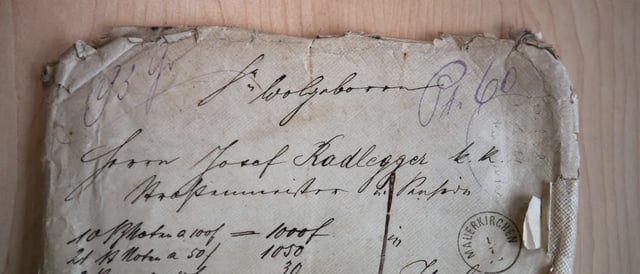 93 98
Sr Wolgeboren
Pr. 60
Herrn Josef Radlegger k. k.
Straßenmeister in Pension
10 B Noten a 100f = 1000f
21 B Noten a 50f 1050
in
30
MAUERKIRCHEN